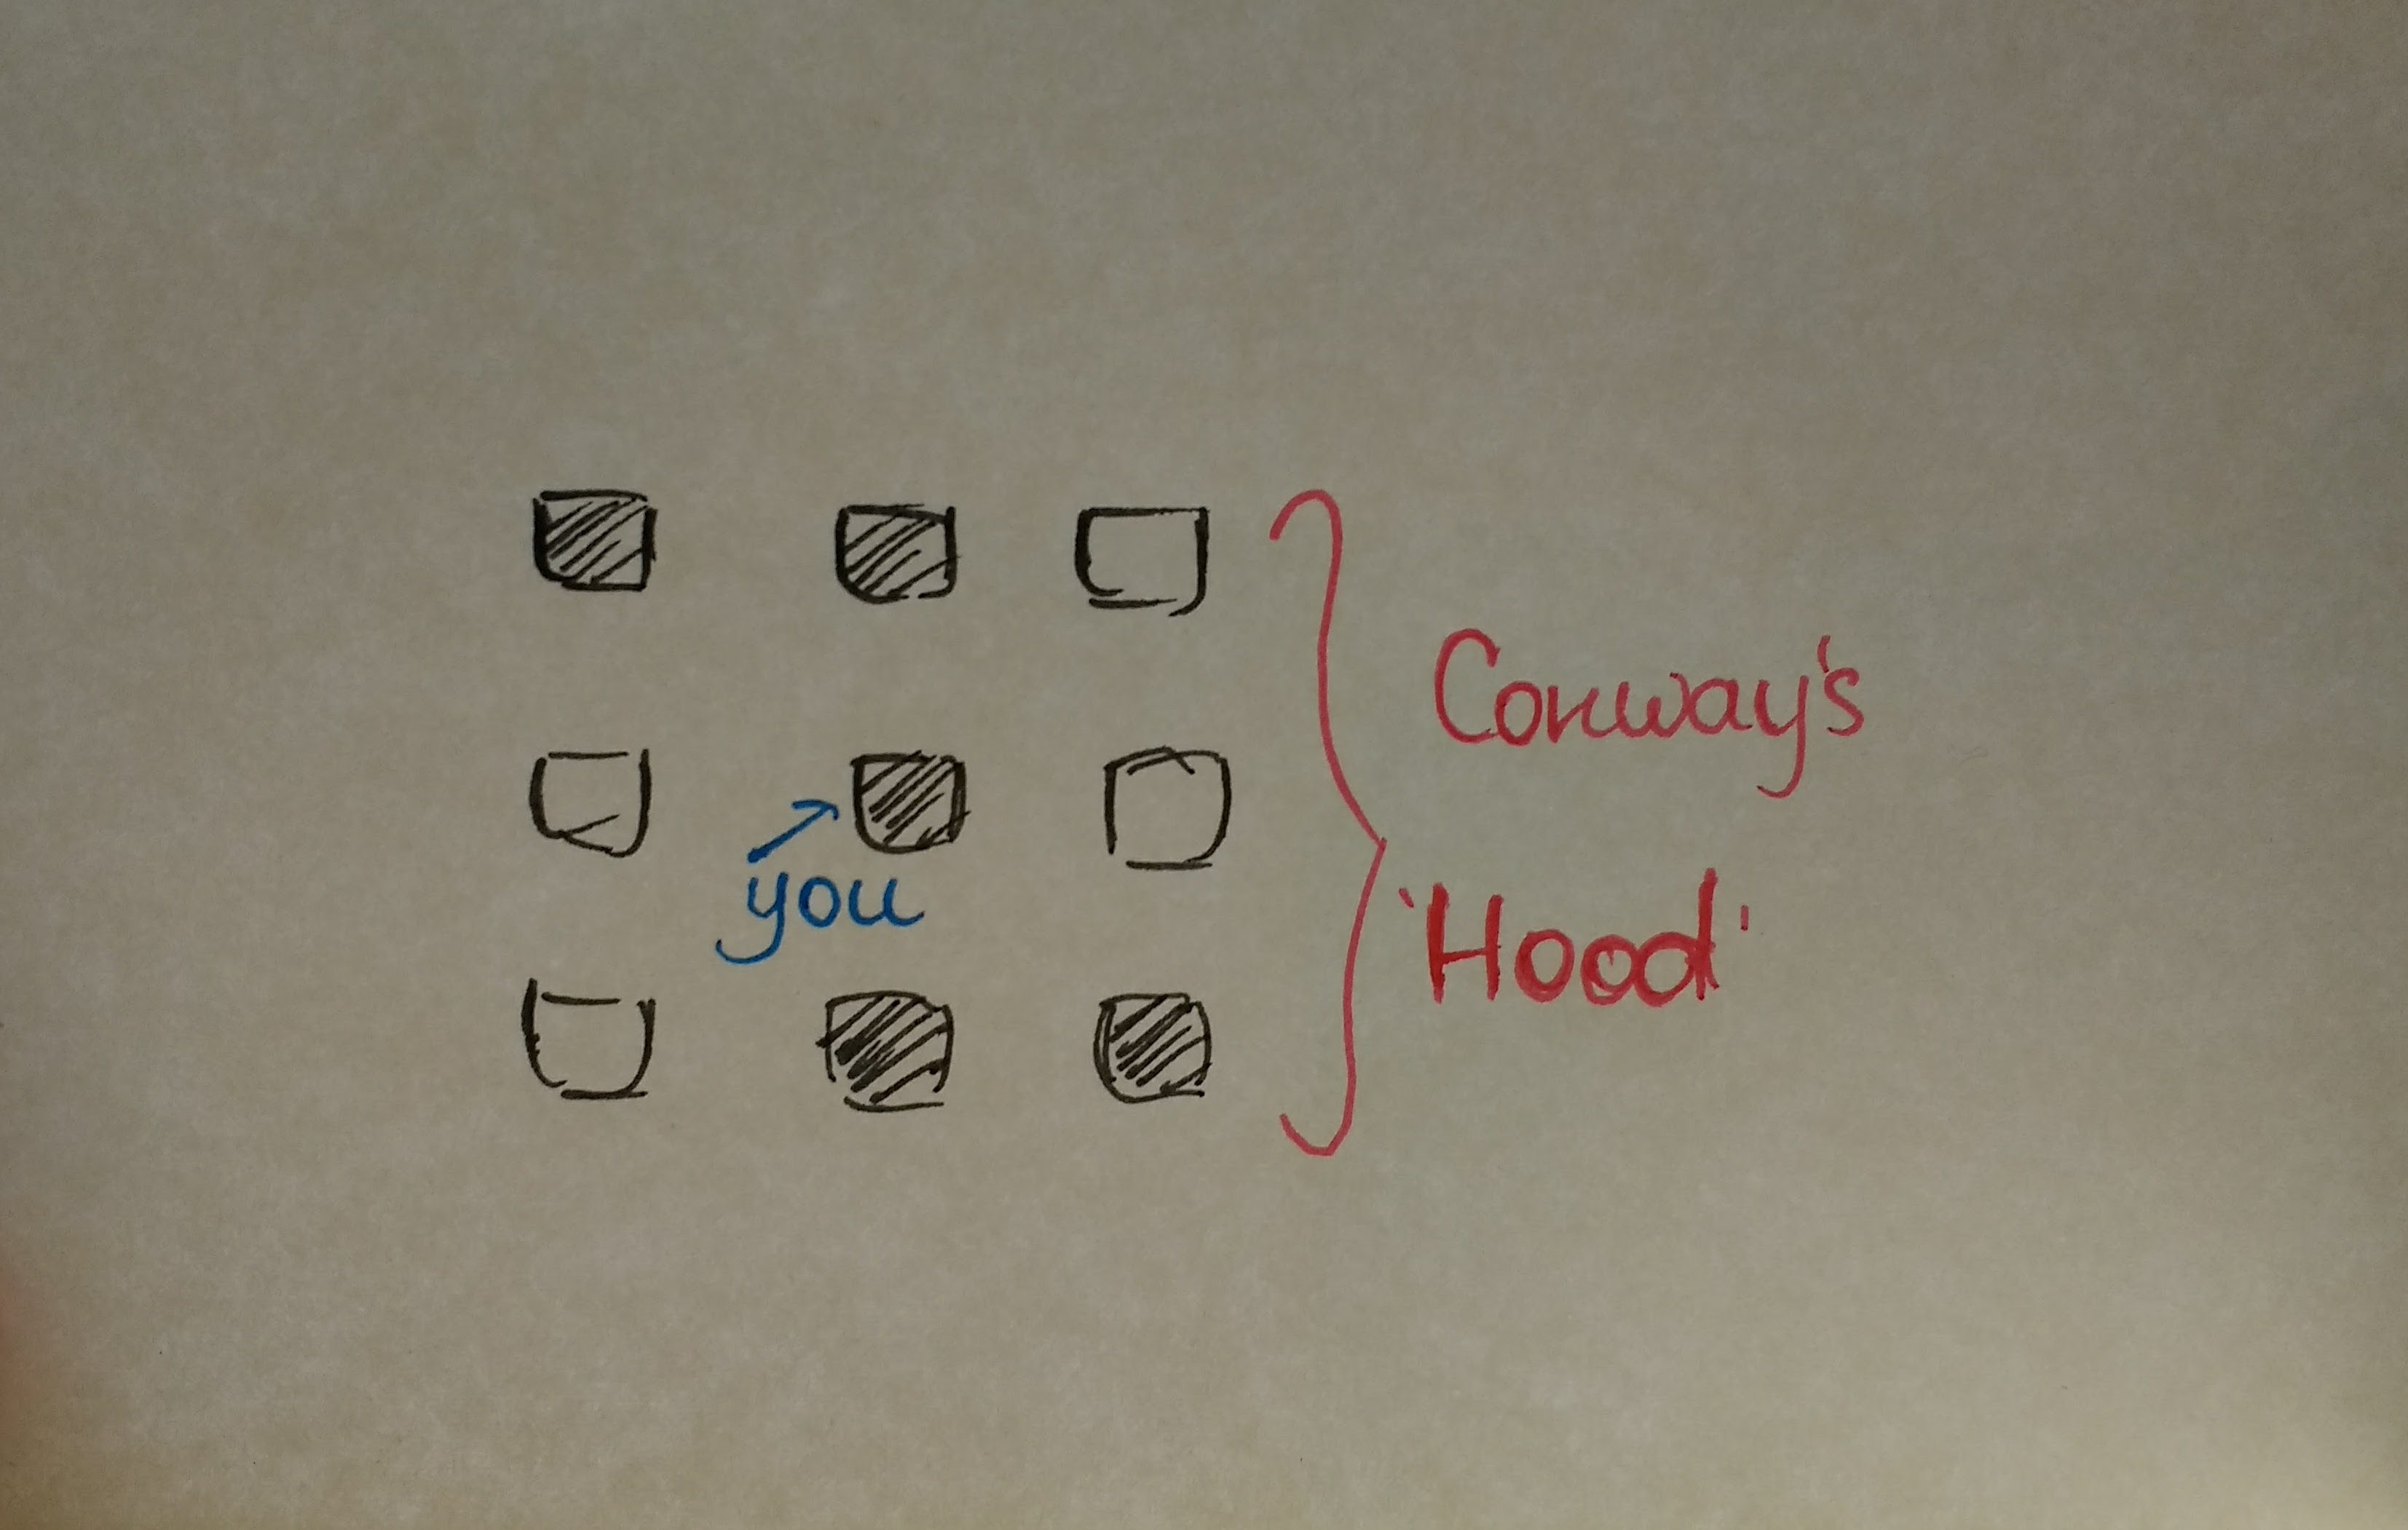 you
Conway's
'Hood'